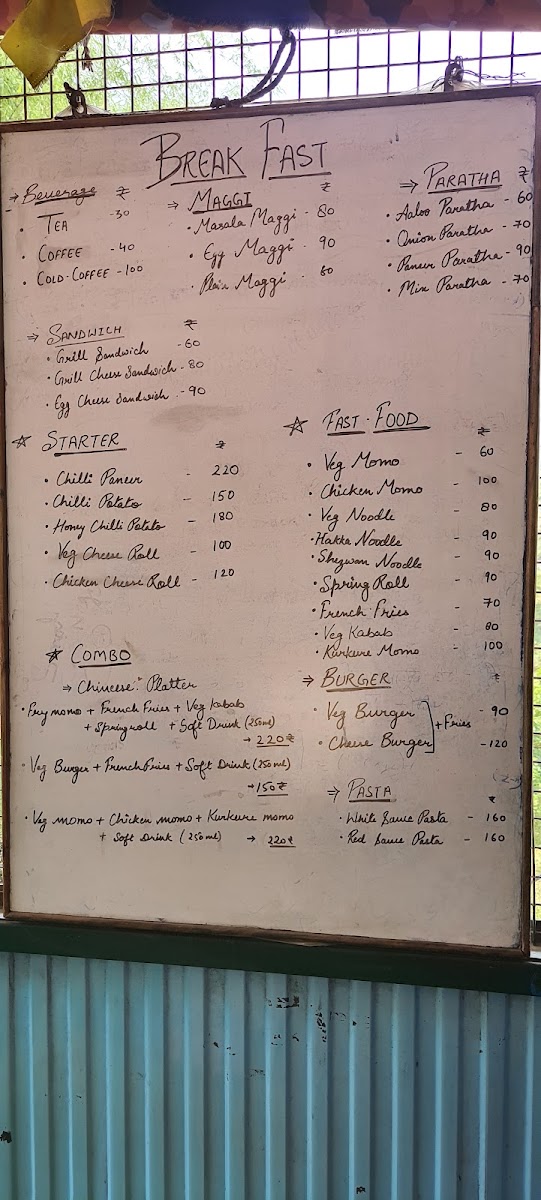 BREAK FAST
⇒ Beverage ₹
• TEA -30
• COFFEE -40
• COLD-COFFEE -100
⇒ MAGGI ₹
• Masala Maggi - 80
• Egg Maggi - 90
• Plain Maggi - 60
⇒ PARATHA ₹
• Aaloo Paratha - 60
• Onion Paratha - 70
• Paneer Paratha - 90
• Mix Paratha - 70
⇒ SANDWICH ₹
• Grill Sandwich -60
• Grill Cheese Sandwich - 80
• Egg Cheese Sandwich - 90
☆ STARTER ₹
• Chilli Paneer - 220
• Chilli Potato - 150
• Honey Chilli Potato - 180
• Veg Cheese Roll - 100
• Chicken Cheese Roll - 120
☆ FAST-FOOD ₹
• Veg Momo - 60
• Chicken Momo - 100
• Veg Noodle - 80
• Hakka Noodle - 90
• Shezwan Noodle - 90
• Spring Roll - 90
• French-Fries - 70
• Veg Kabab - 80
• Kurkure Momo - 100
☆ COMBO
⇒ Chineese Platter
• Fry momo + French Fries + Veg kabab
+ Spring roll + Soft Drink (250ml)
→ 220₹
• Veg Burger + French Fries + Soft Drink (250ml)
→ 150₹
• Veg momo + Chicken momo + Kurkure momo
+ Soft Drink (250ml) → 220₹
⇒ BURGER ₹
• Veg Burger - 90
+ Fries
• Cheese Burger -120
⇒ PASTA ₹
• White Sauce Pasta - 160
• Red Sauce Pasta - 160